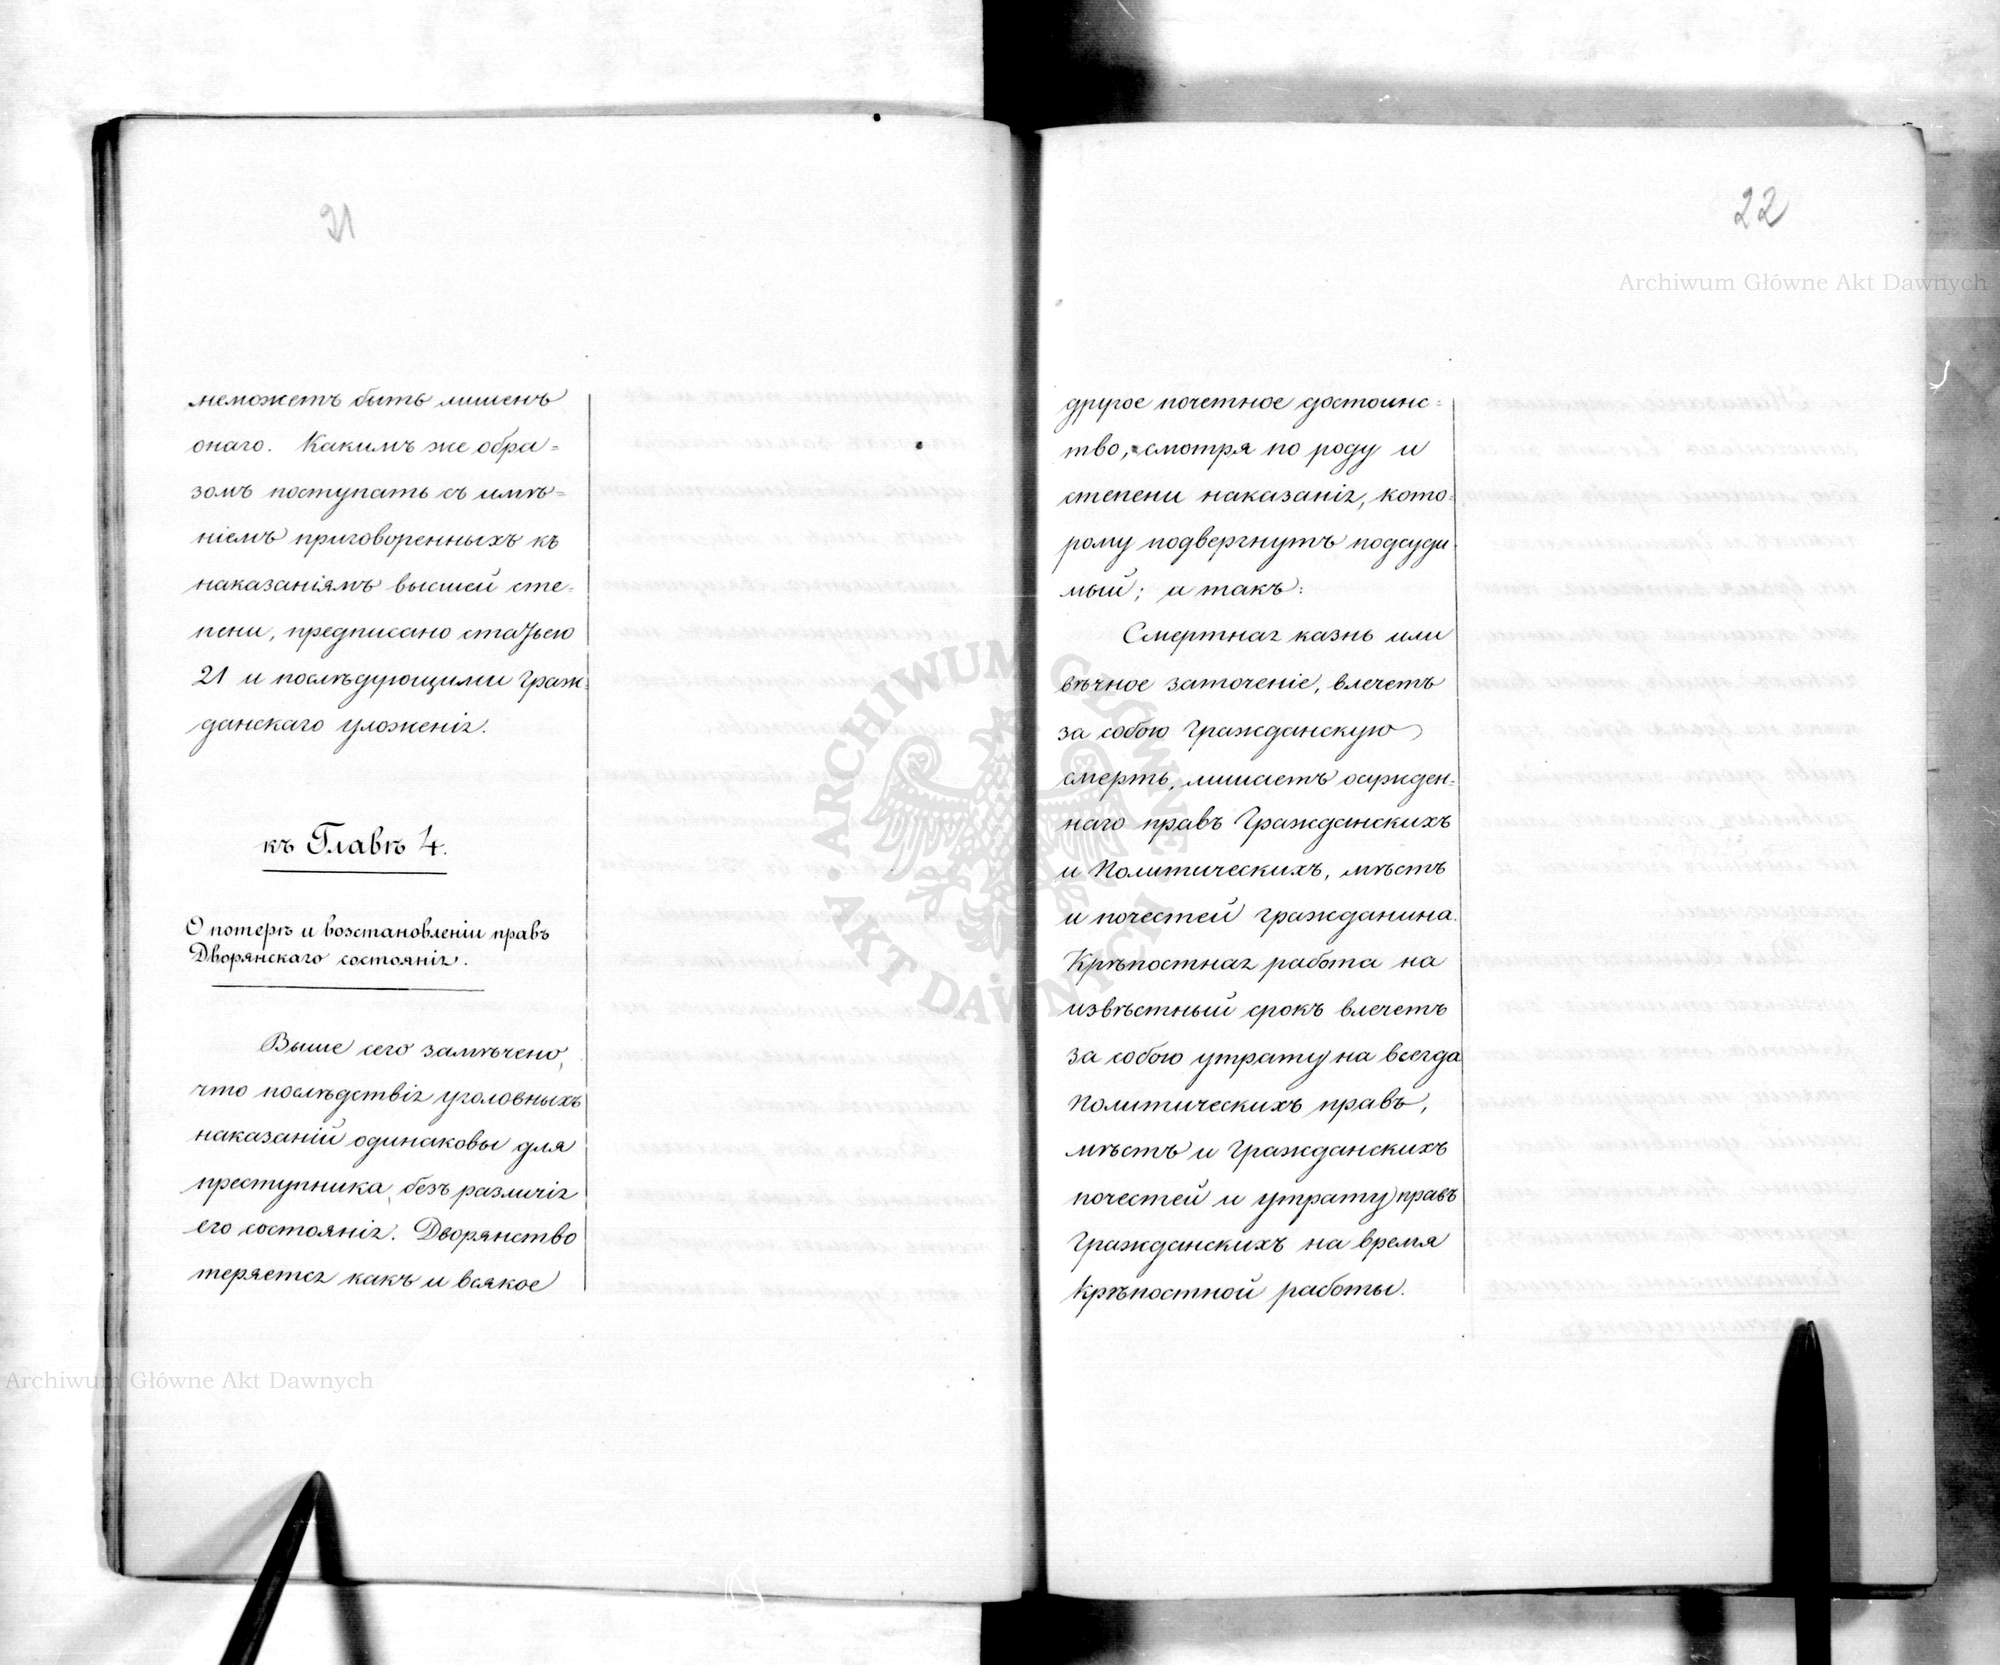 21
неможетъ быть лишенъ
онаго. Какимъ же обра=
зомъ поступать съ имѣ=
ніемъ приговоренныхъ къ
наказаніямъ высшей сте=
пени, предписано статьею
21 и послѣдующими Граж=
данскаго уложенія.
къ Главѣ 4.
О потерѣ и возстановленіи правъ
Дворянскаго состоянія.
Выше сего замѣчено,
что послѣдствія уголовныхъ
наказаній одинаковы для
преступника, безъ различія
его состоянія. Дворянство
теряется какъ и всякое
22
другое почетное достоинс=
тво, смотря по роду и
степени наказанія, кото=
рому подвергнутъ подсуди=
мый; а такъ:
Смертная казнь или
вѣчное заточеніе, влечетъ
за собою Гражданскую
смерть, лишаетъ осужден=
наго правъ Гражданскихъ
и Политическихъ, мѣстъ
и почестей гражданина.
Крѣпостная работа на
извѣстный срокъ влечетъ
за собою утрату на всегда
Политическихъ правъ,
мѣстъ и Гражданскихъ
почестей и утрату правъ
Гражданскихъ на время
Крѣпостной работы.
Archiwum Główne Akt Dawnych
Archiwum Główne Akt Dawnych
ARCHIWUM GŁÓWNE AKT DAWNYCH